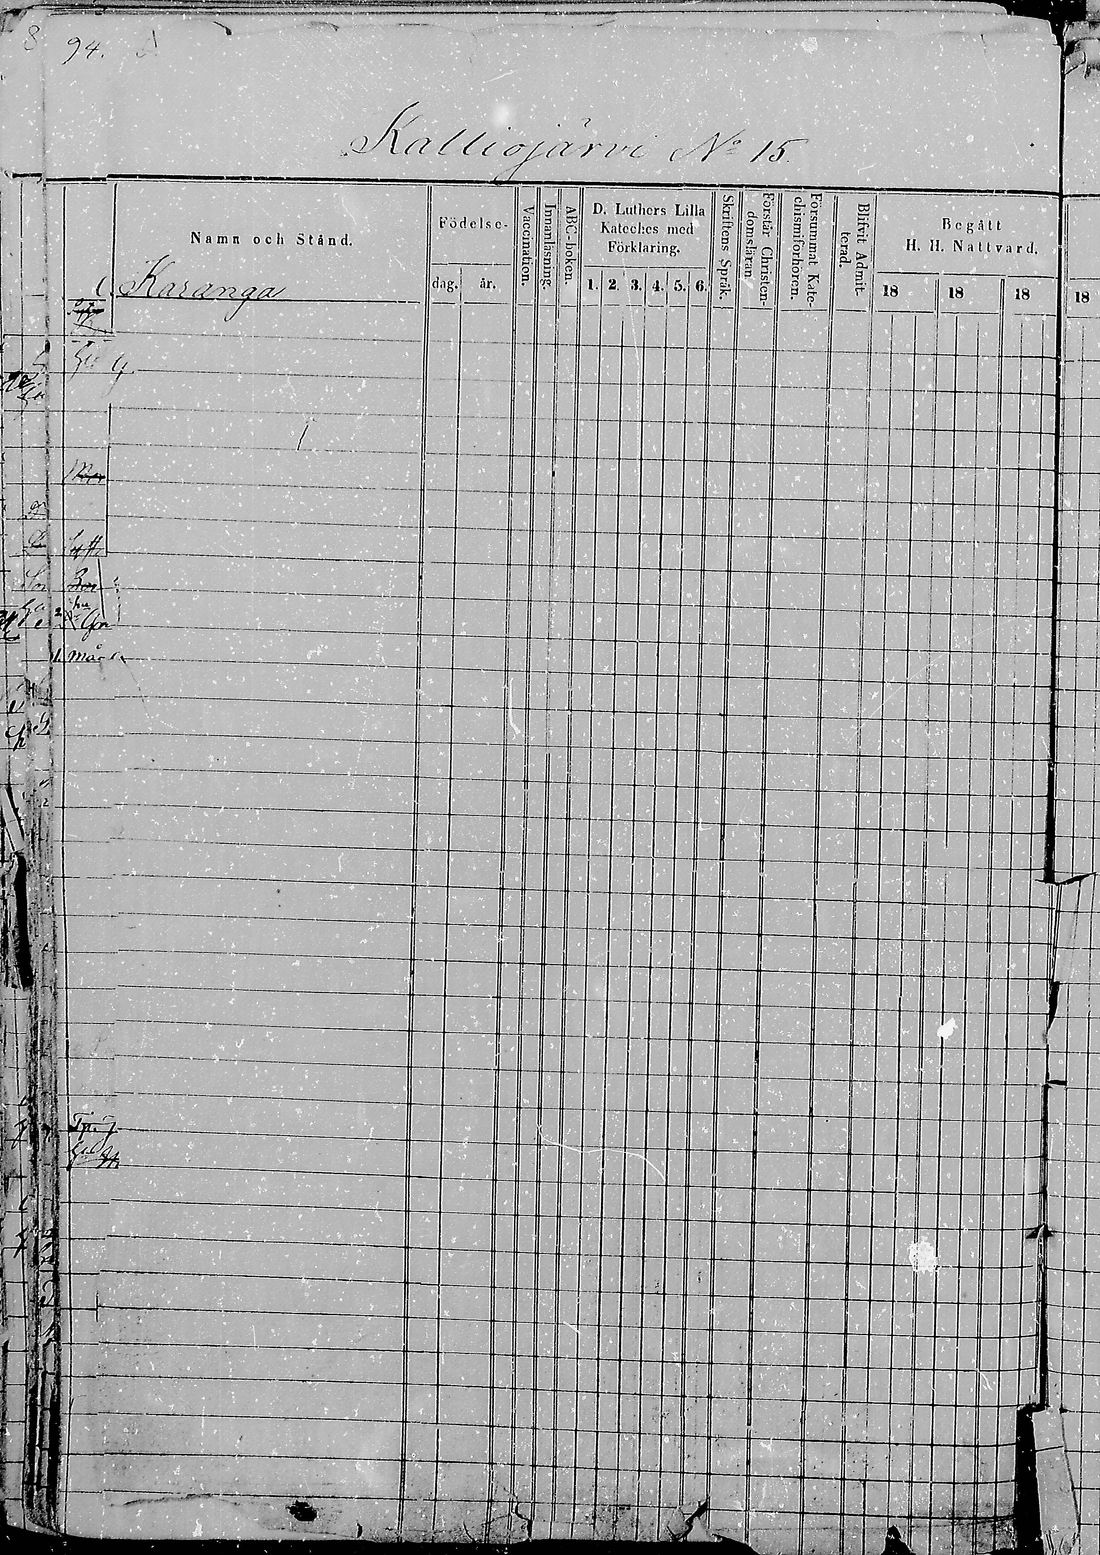 94.
Kalliojärvi No 15.
Namn och Stånd.
Födelse-
dag. år.
Vaccination.
Innanläsning.
ABC-boken.
D. Luthers Lilla
Kateches med
Förklaring.
1. 2. 3. 4. 5. 6.
Skriftens Språk.
Förstår Christen-
domsläran.
Försummat Kate-
chismiförhören.
Blifvit Admit-
terad.
Begått
H. H. Nattvard.
18 18 18 18
Karanga